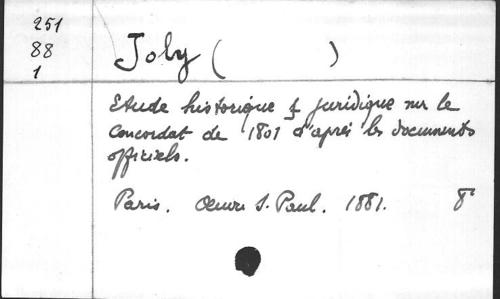 251
88
1
Joly ( )
Etude historique & juridique sur le
Concordat de 1801 d'après les documents
officiels.
Paris. Oeuvre S. Paul. 1881. 8°